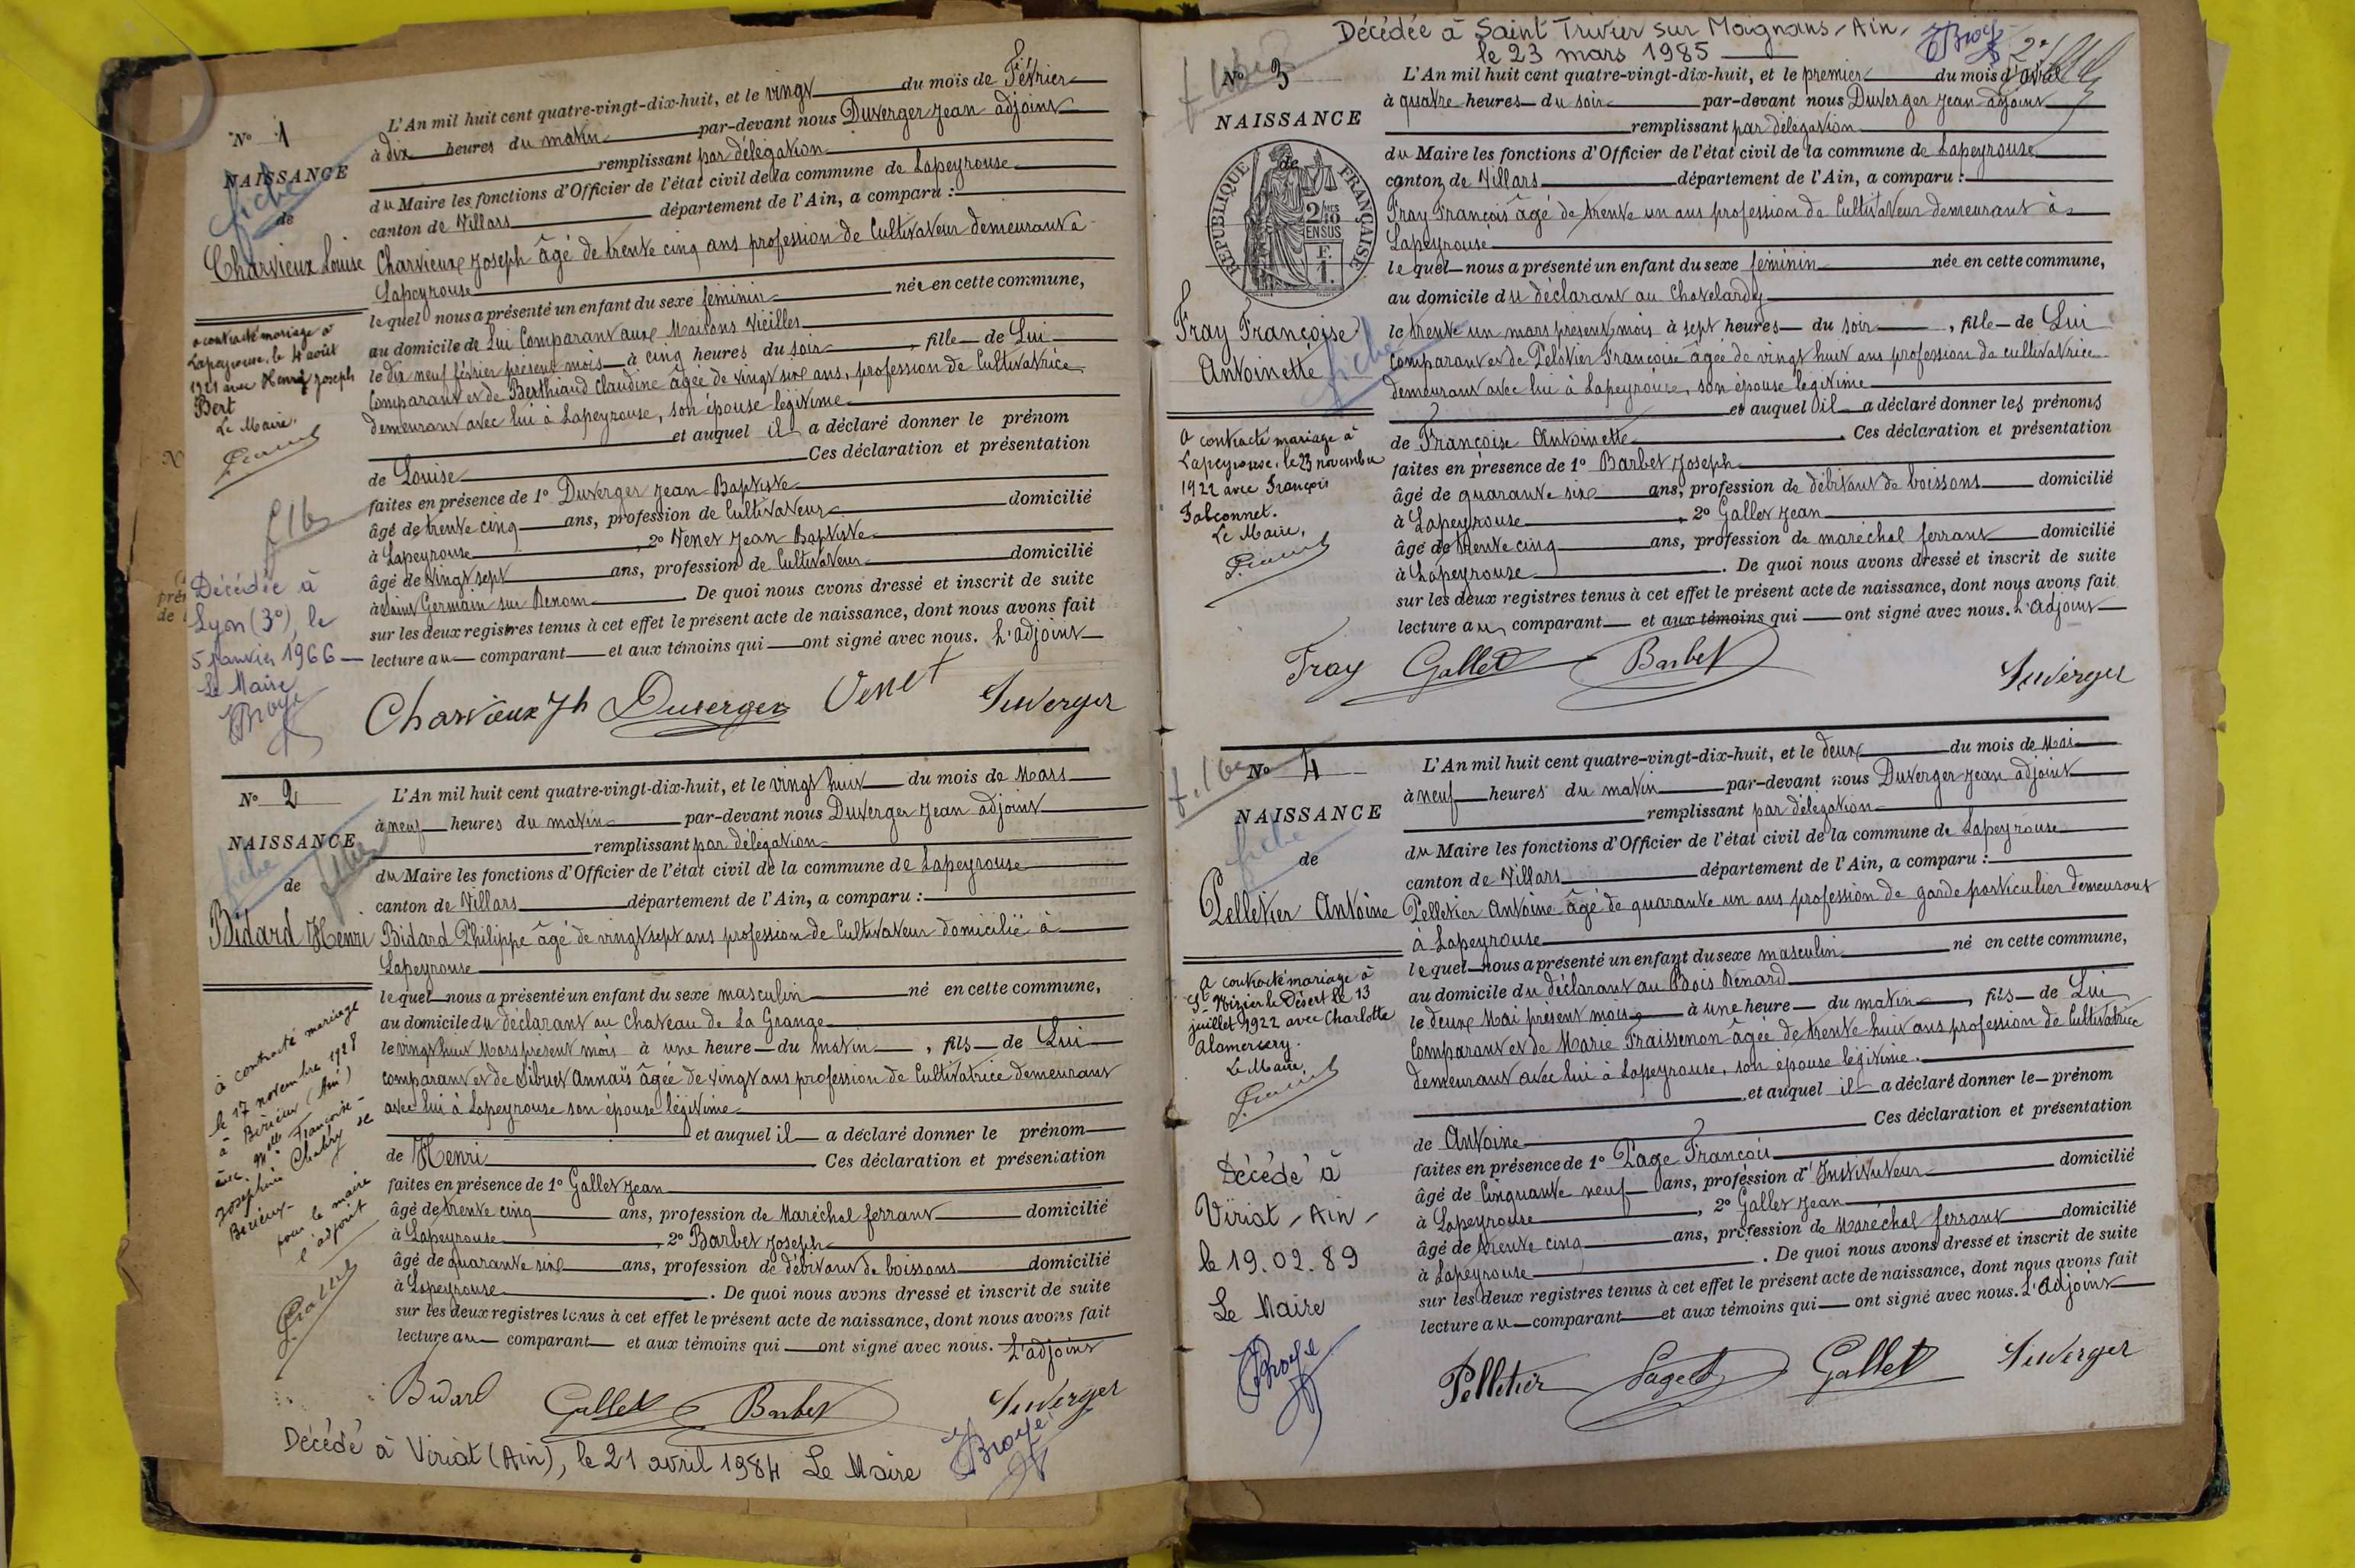 N° 1
NAISSANCE
fiche
de
Charvieux Louise
a contracté mariage à
Lapeyrouse, le 4 août
1921 avec Henri Joseph
Bert
Le Maire,
Décédée à
Lyon (3°), le
5 janvier 1966
Le Maire
L'An mil huit cent quatre-vingt-dix-huit, et le vingt du mois de Février
à dix heures du matin par-devant nous Duverger Jean adjoint
remplissant par délégation
du Maire les fonctions d'Officier de l'état civil de la commune de Lapeyrouse
canton de Villars département de l'Ain, a comparu :
Charvieux Joseph âgé de trente cinq ans profession de Cultivateur demeurant à
Lapeyrouse
lequel nous a présenté un enfant du sexe féminin née en cette commune,
au domicile de Lui Comparant aux Maisons Vieilles
le dix neuf février présent mois à cinq heures du soir, fille de Lui
Comparant et de Berthiaud Claudine âgée de vingt six ans, profession de Cultivatrice
demeurant avec lui à Lapeyrouse, son épouse légitime
et auquel il a déclaré donner le prénom
de Louise Ces déclaration et présentation
faites en présence de 1° Duverger Jean-Baptiste
âgé de trente cinq ans, profession de Cultivateur domicilié
à Lapeyrouse, 2° Venet Jean Baptiste
âgé de vingt sept ans, profession de Cultivateur domicilié
à Saint Germain sur Renom De quoi nous avons dressé et inscrit de suite
sur les deux registres tenus à cet effet le présent acte de naissance, dont nous avons fait
lecture au comparant et aux témoins qui ont signé avec nous. L'adjoint
Charvieux Jh Duverger Venet Duverger
N° 2
NAISSANCE
fiche
de
Bidard Henri
à contracté mariage
le 17 novembre 1928
à Birieux (Ain)
avec Melle Françoise-
Joséphine Chabry de
Birieux-
pour le maire
l'adjoint
L'An mil huit cent quatre-vingt-dix-huit, et le vingt huit du mois de Mars
à neuf heures du matin par-devant nous Duverger Jean adjoint
remplissant par délégation
du Maire les fonctions d'Officier de l'état civil de la commune de Lapeyrouse
canton de Villars département de l'Ain, a comparu :
Bidard Philippe âgé de vingt sept ans profession de Cultivateur domicilié à
Lapeyrouse
lequel nous a présenté un enfant du sexe masculin né en cette commune,
au domicile du déclarant au Chateau de La Grange
le vingt huit Mars présent mois à une heure du matin, fils de Lui
comparant et de Sibuet Annaïs âgée de vingt ans profession de Cultivatrice demeurant
avec lui à Lapeyrouse son épouse légitime
et auquel il a déclaré donner le prénom
de Henri Ces déclaration et présentation
faites en présence de 1° Gallet Jean
âgé de trente cinq ans, profession de Maréchal ferrant domicilié
à Lapeyrouse, 2° Barbet Joseph
âgé de quarante six ans, profession de débitant de boissons domicilié
à Lapeyrouse. De quoi nous avons dressé et inscrit de suite
sur les deux registres tenus à cet effet le présent acte de naissance, dont nous avons fait
lecture au comparant et aux témoins qui ont signé avec nous. L'adjoint
Bidard Gallet Barbet Duverger
Décédé à Viriat (Ain), le 21 avril 1984 Le Maire
Décédée à Saint Trivier sur Moignans, Ain,
le 23 mars 1985
N° 3
NAISSANCE
de
RÉPUBLIQUE FRANÇAISE
Fray Françoise
Antoinette
fiche
a contracté mariage à
Lapeyrouse, le 23 novembre
1922 avec François
Falconnet.
Le Maire,
L'An mil huit cent quatre-vingt-dix-huit, et le premier du mois d'avril
à quatre heures du soir par-devant nous Duverger Jean adjoint
remplissant par délégation
du Maire les fonctions d'Officier de l'état civil de la commune de Lapeyrouse
canton de Villars département de l'Ain, a comparu :
Fray François âgé de trente un ans profession de Cultivateur demeurant à
Lapeyrouse
lequel nous a présenté un enfant du sexe féminin née en cette commune,
au domicile du déclarant au Chatelardy
le trente un mars présent mois à sept heures du soir, fille de Lui
comparant et de Pelotier Françoise âgée de vingt huit ans profession de cultivatrice
demeurant avec lui à Lapeyrouse, son épouse légitime
et auquel il a déclaré donner les prénoms
de Françoise Antoinette. Ces déclaration et présentation
faites en présence de 1° Barbet Joseph
âgé de quarante six ans, profession de débitant de boissons domicilié
à Lapeyrouse, 2° Gallet Jean
âgé de trente cinq ans, profession de maréchal ferrant domicilié
à Lapeyrouse. De quoi nous avons dressé et inscrit de suite
sur les deux registres tenus à cet effet le présent acte de naissance, dont nous avons fait
lecture au comparant et aux témoins qui ont signé avec nous. L'adjoint
Fray Gallet Barbet Duverger
N° 4
NAISSANCE
fiche
de
Pelletier Antoine
a contracté mariage à
St Nizier le Désert le 13
juillet 1922 avec Charlotte
Alamercery.
Le Maire,
Décédé à
Viriat, Ain,
le 19.02.89
Le Maire
L'An mil huit cent quatre-vingt-dix-huit, et le deux du mois de Mai
à neuf heures du matin par-devant nous Duverger Jean adjoint
remplissant par délégation
du Maire les fonctions d'Officier de l'état civil de la commune de Lapeyrouse
canton de Villars département de l'Ain, a comparu :
Pelletier Antoine âgé de quarante un ans profession de garde particulier demeurant
à Lapeyrouse
lequel nous a présenté un enfant du sexe masculin né en cette commune,
au domicile du déclarant au Bois Renard
le deux Mai présent mois à une heure du matin, fils de Lui
Comparant et de Marie Fraissenon âgée de trente huit ans profession de Cultivatrice
demeurant avec lui à Lapeyrouse, son épouse légitime.
et auquel il a déclaré donner le prénom
de Antoine Ces déclaration et présentation
faites en présence de 1° Page François
âgé de Cinquante neuf ans, profession d'Instituteur domicilié
à Lapeyrouse, 2° Gallet Jean
âgé de trente cinq ans, profession de Maréchal ferrant domicilié
à Lapeyrouse. De quoi nous avons dressé et inscrit de suite
sur les deux registres tenus à cet effet le présent acte de naissance, dont nous avons fait
lecture au comparant et aux témoins qui ont signé avec nous. L'adjoint
Pelletier Gallet Duverger